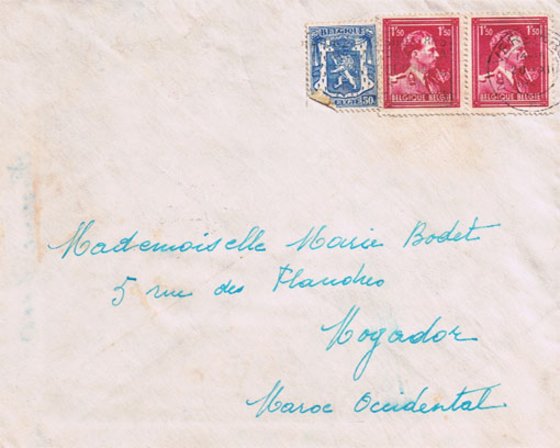 BELGIQUE
BELGIE 50
1F50 1F50
BELGIQUE BELGIE
1F50 1F50
BELGIQUE BELGIE
Mademoiselle Marie Bodet
5 rue des Flandres
Mogador
Maroc Occidental